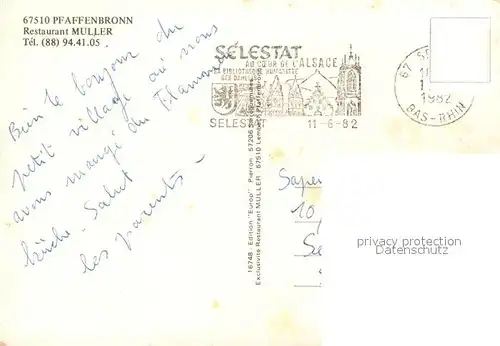 67510 PFAFFENBRONN
Restaurant MULLER
Tél. (88) 94.41.05
Bien le bonjour du
petit village où nous
avons mangé du Flammen
küche - Salut
les parents -
SELESTAT
AU CŒUR DE L'ALSACE
SA BIBLIOTHEQUE HUMANISTE
SELESTAT 11-6-82
67 S
1982
BAS-RHIN
16748 Edition "Europ" Pierron 57206 Sarreguemines
Exclusivité Restaurant MULLER 67510 Lembach Pfaffenbronn
Sape
10
Se
privacy protection
Datenschutz